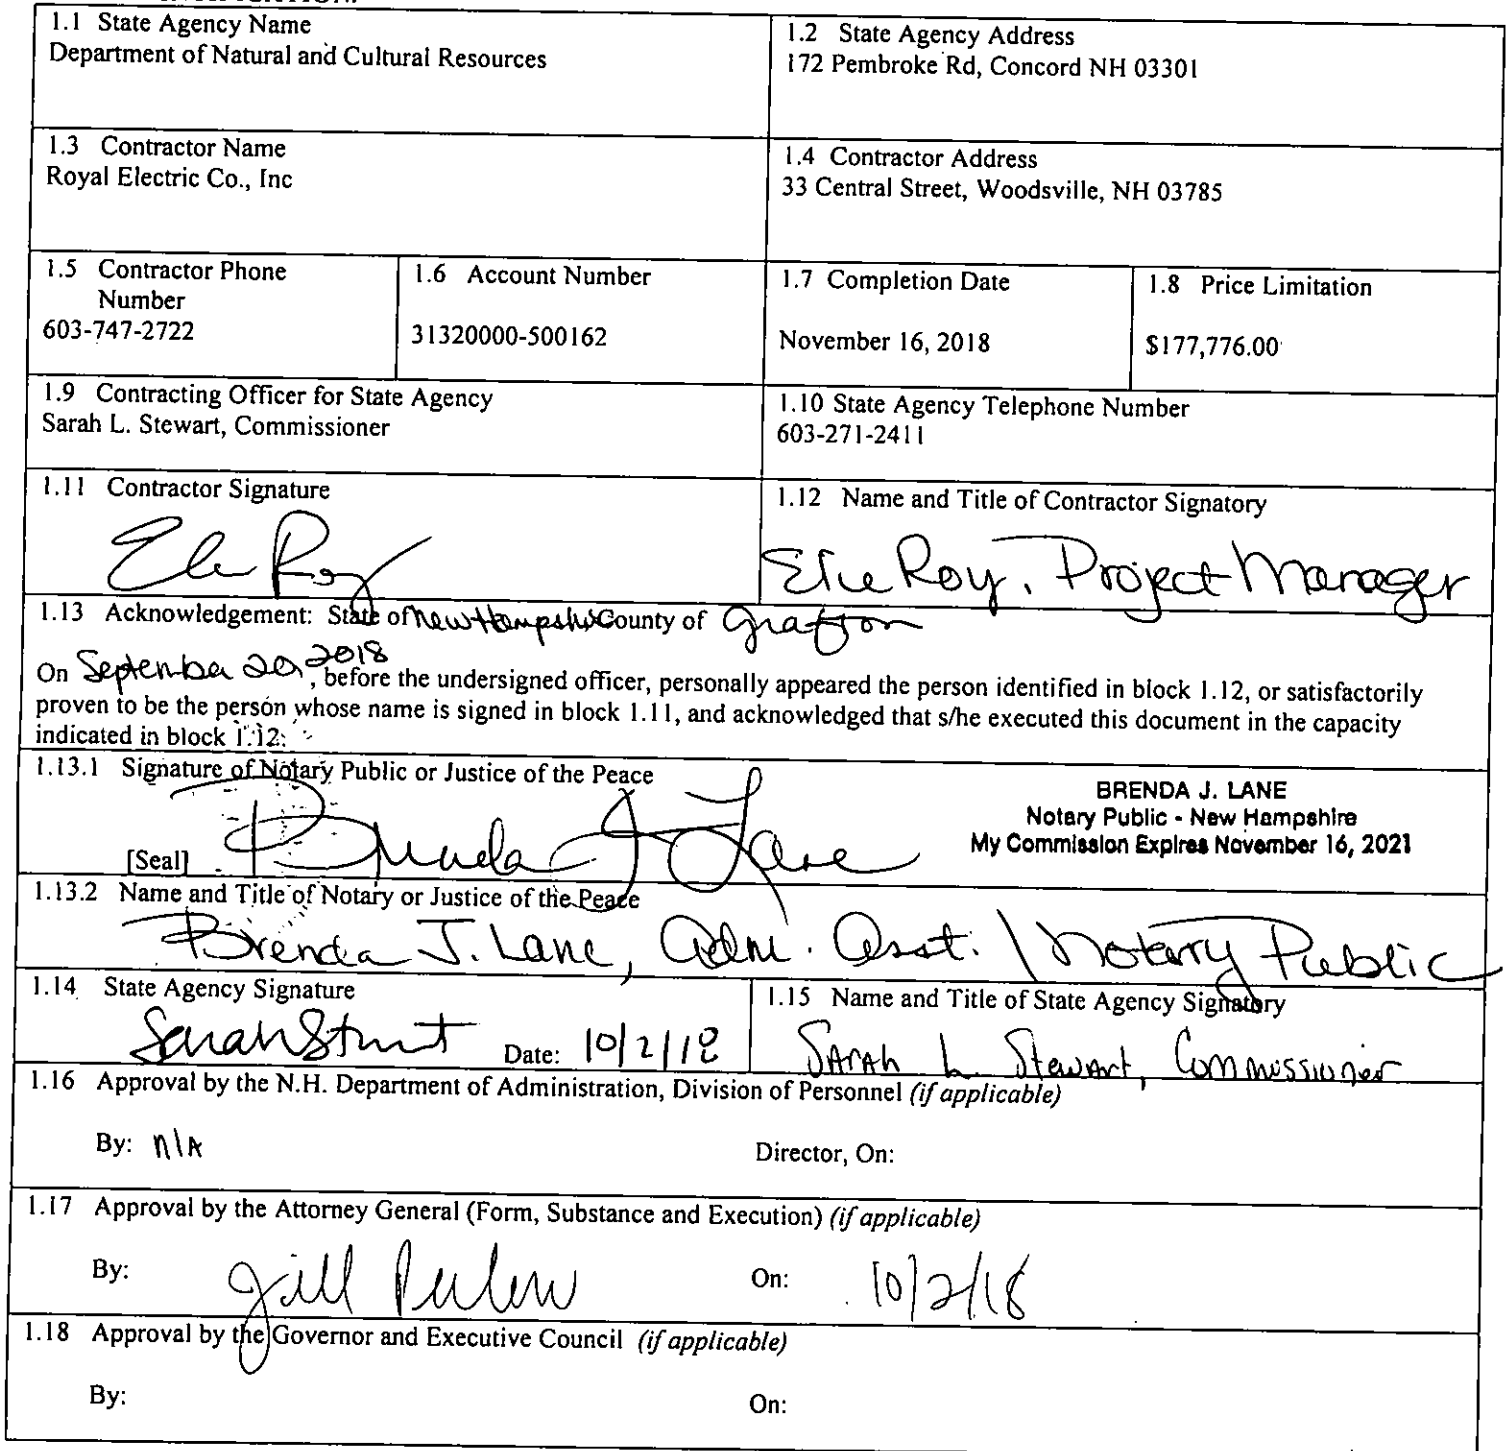 1.1 State Agency Name
Department of Natural and Cultural Resources
1.2 State Agency Address
172 Pembroke Rd, Concord NH 03301
1.3 Contractor Name
Royal Electric Co., Inc
1.4 Contractor Address
33 Central Street, Woodsville, NH 03785
1.5 Contractor Phone
Number
603-747-2722
1.6 Account Number
31320000-500162
1.7 Completion Date
November 16, 2018
1.8 Price Limitation
$177,776.00
1.9 Contracting Officer for State Agency
Sarah L. Stewart, Commissioner
1.10 State Agency Telephone Number
603-271-2411
1.11 Contractor Signature
1.12 Name and Title of Contractor Signatory
Roy, Project Manager
1.13 Acknowledgement: State of New Hampshire County of Grafton
On September 20, 2018, before the undersigned officer, personally appeared the person identified in block 1.12, or satisfactorily
proven to be the person whose name is signed in block 1.11, and acknowledged that s/he executed this document in the capacity
indicated in block 1.12.
1.13.1 Signature of Notary Public or Justice of the Peace
Brenda J Lane
[Seal]
BRENDA J. LANE
Notary Public - New Hampshire
My Commission Expires November 16, 2021
1.13.2 Name and Title of Notary or Justice of the Peace
Brenda J. Lane, Adm. Asst. / Notary Public
1.14 State Agency Signature
Sarah Stewart Date: 10/2/18
1.15 Name and Title of State Agency Signatory
Sarah L. Stewart, Commissioner
1.16 Approval by the N.H. Department of Administration, Division of Personnel (if applicable)
By: n/A Director, On:
1.17 Approval by the Attorney General (Form, Substance and Execution) (if applicable)
By: Jill On: 10/2/18
1.18 Approval by the Governor and Executive Council (if applicable)
By: On: